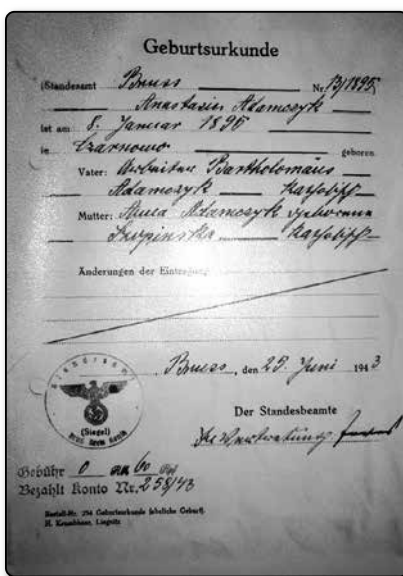 Geburtsurkunde
(Standesamt Bruss Nr. 13/1895
Anastasius Adamczyk
ist am 8. Januar 1895
in Czarnowo geboren
Vater: Arbeiter Bartholomäus
Adamczyk Katholisch
Mutter: Anna Adamczyk geborene
Katholisch
Änderungen der Eintragung
Bruss, den 25. Juni 1943
Standesamt
(Siegel)
Der Standesbeamte
In Vertretung
Gebühr 0 60
Bezahlt Konto Nr. 258/43
Bestell-Nr. 254 Geburtsurkunde (eheliche Geburt)
Liegnitz